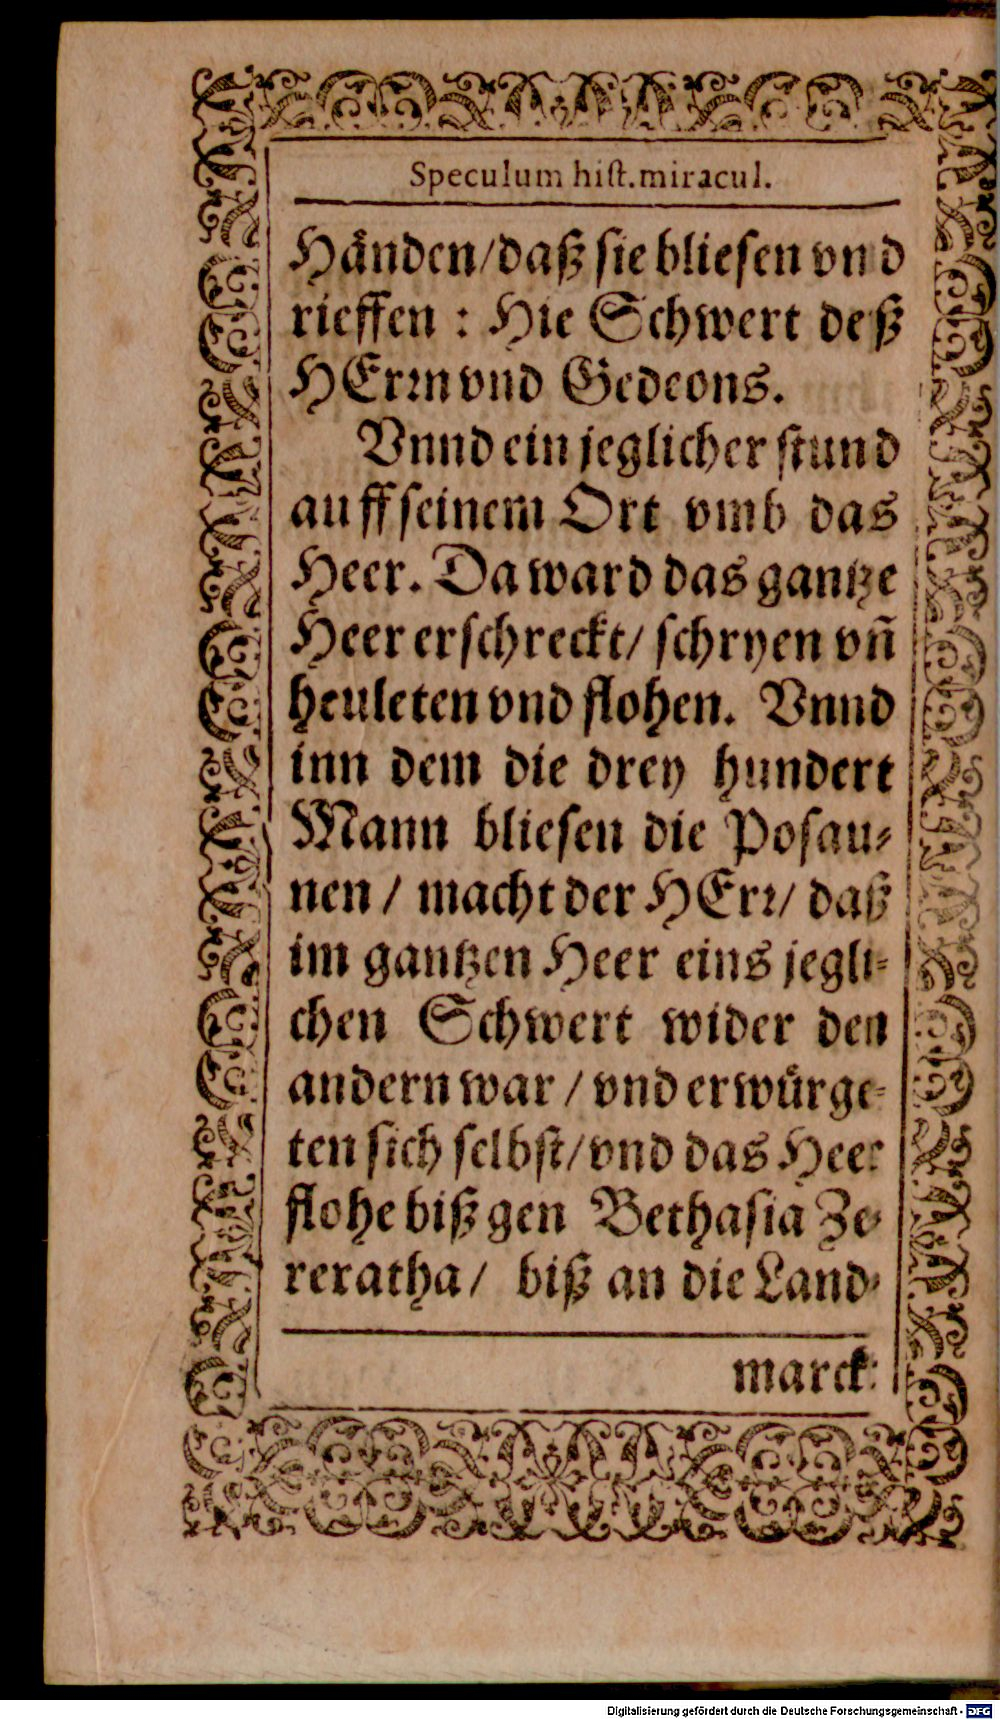 Speculum hist. miracul.
Händen/ daß sie bliesen vnd
rieffen : Hie Schwert deß
HErrn vnd Gedeons.
Vnnd ein jeglicher stund
auff seinem Ort vmb das
Heer. Da ward das gantze
Heer erschreckt/ schryen vñ
heuleten vnd flohen. Vnnd
inn dem die drey hundert
Mann bliesen die Posau-
nen / macht der HErr/ daß
im gantzen Heer eins jegli-
chen Schwert wider den
andern war / vnd erwürge-
ten sich selbst/ vnd das Heer
flohe biß gen Bethasia Ze-
reratha/ biß an die Land-
marck
Digitalisierung gefördert durch die Deutsche Forschungsgemeinschaft - DFG